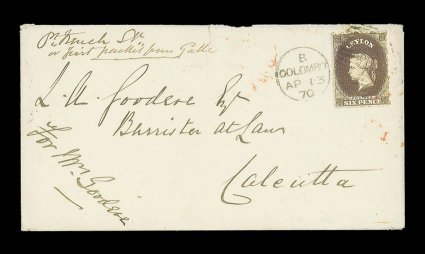 pr French Str
or first packet from Galle
B
COLOMBO
AP 13
70
CEYLON
SIX PENCE
L. A. Goodeve Esq
Barrister at Law
Calcutta
For Mrs Goodeve